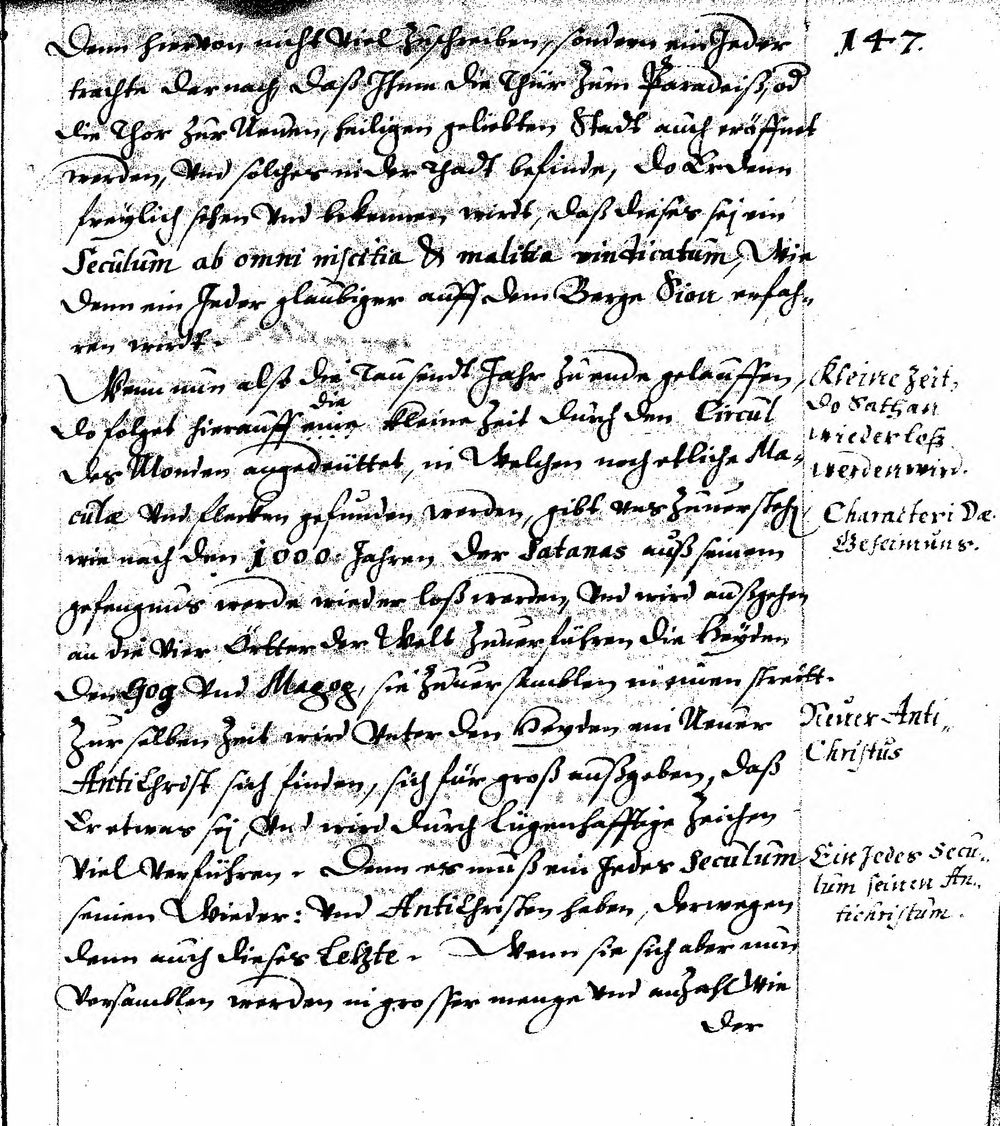 147.
Denn hiervon nicht viel zuschreiben, sondern ein Jeder
trachte darnach, daß Ihme die Thür zum Paradeiß, od
die Thor zur Neuen, heiligen geliebten Stadt auch eröffnet
werden, Vnd solches in der Thadt befinde, do Er denn
freylich sehen Vnd bekennen wirdt, daß dieses sej ein
Seculum ab omni inscitia & malitia vindicatum, Wie
denn ein Jeder glaubiger auff dem Berge Sion erfah-
ren wirdt.
Wenn nun alß die Tausendt Jahr zu ende gelauffen,
do folget hierauff eine die kleine Zeit durch den Circul
des Monden angedeüttet, in Welchen noch etliche Ma-
culæ Vnd flecken gefunden werden, gibt vns zuuersteh
wie nach den 1000. Jahren der Satanas auß seinem
gefengnus werde wieder loß werden, Vnd wird außgehen
an die Vier Örtter der Welt zuuerführen die Heyden
den Gog Vnd Magog, sie zuuersamblen in einen streitt.
Zur selben Zeit wird Vnter den Heyden ein Neuer
AntiChrist sich finden, sich für groß außgeben, daß
Er etwas sej, Vnd wird durch lügenhafftige Zeichen
viel Verführen. Denn es muß ein Jedes Seculum
seinen Wieder: Vnd AntiChristen haben, derwegen
denn auch dieses Letzte. Wenn sie sich aber nun
Versamblen werden in grosser menge Vnd anzahl Wie
der
Kleine Zeit,
do Sathan
wieder loß
werden wird.
Characteri Dæ
Geheimnus.
Neuer Anti-
Christus
Ein Jedes Secu-
lum seinen An-
tichristum.